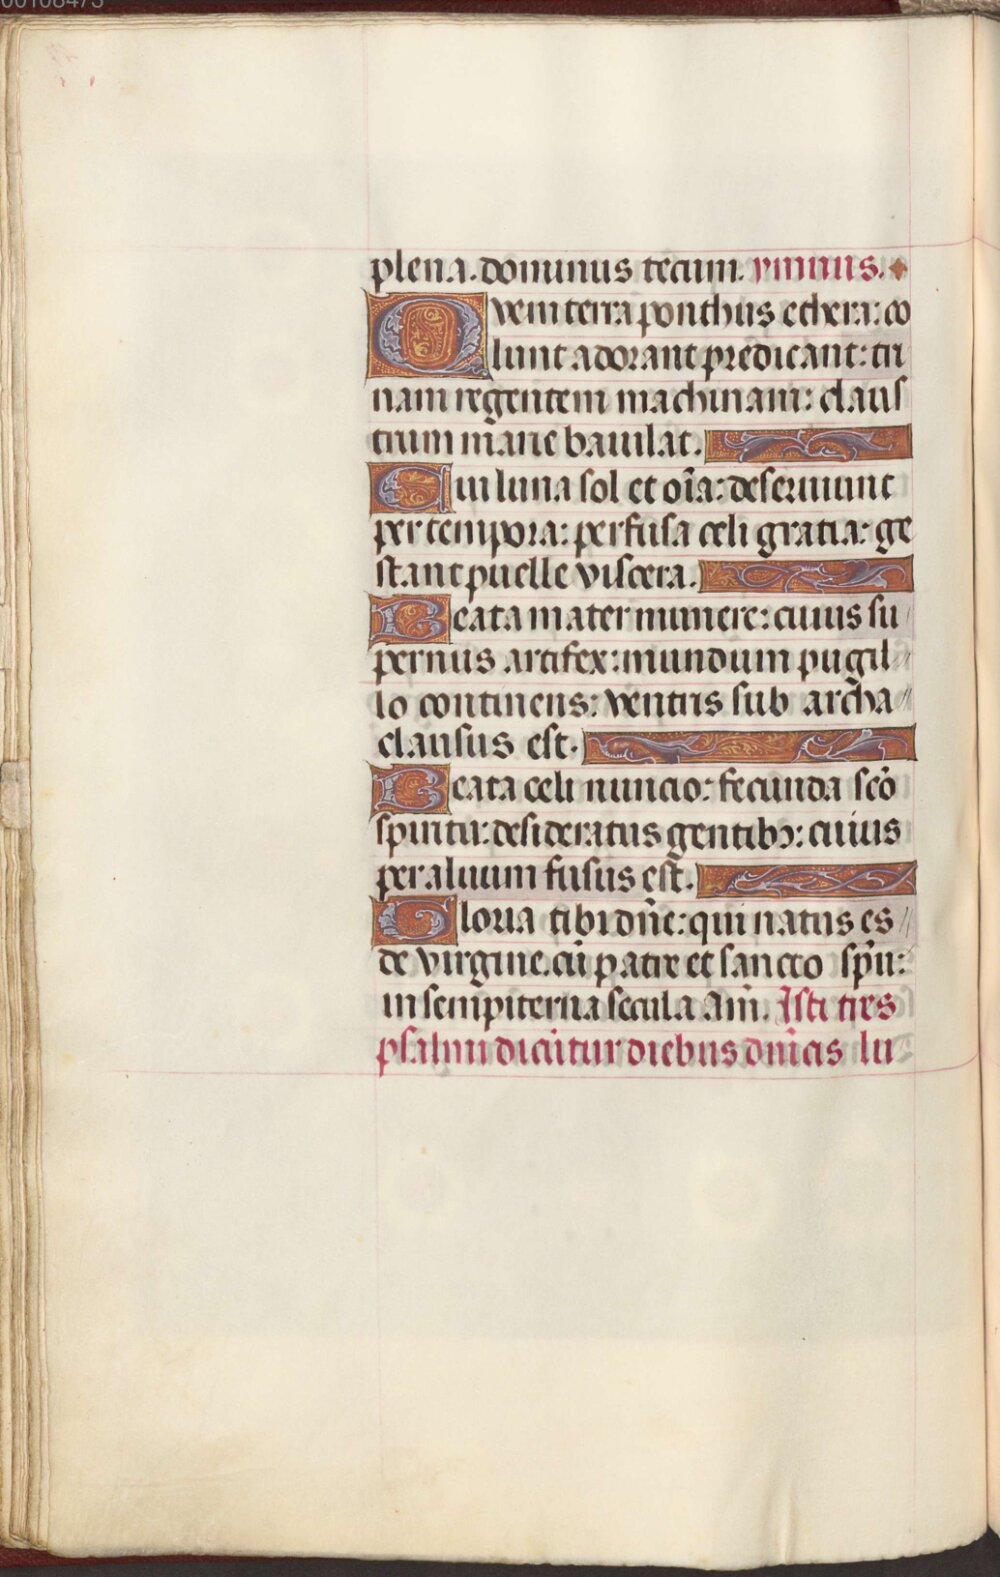 00108473
plena. dominus tecum. ymnus.
Quem terra ponthus ethera: co
lunt adorant predicant: tri
nam regentem machinam: claus
trum marie baiulat.
Cui luna sol et oīa: deseruiunt
per tempora: perfusa celi gratia: ge
stant puelle viscera.
Beata mater munere: cuius su
pernus artifex: mundum pugil
lo continens: ventris sub archa
clausus est.
Beata celi nuncio: fecunda scō
spiritu: desideratus gentibꝫ: cuius
per aluum fusus est.
Gloria tibi dn̄e: qui natus es
de virgine. cū patre et sancto spū:
in sempiterna secula Am̄. Isti tres
psalmi dicūtur diebus dn̄icis lu